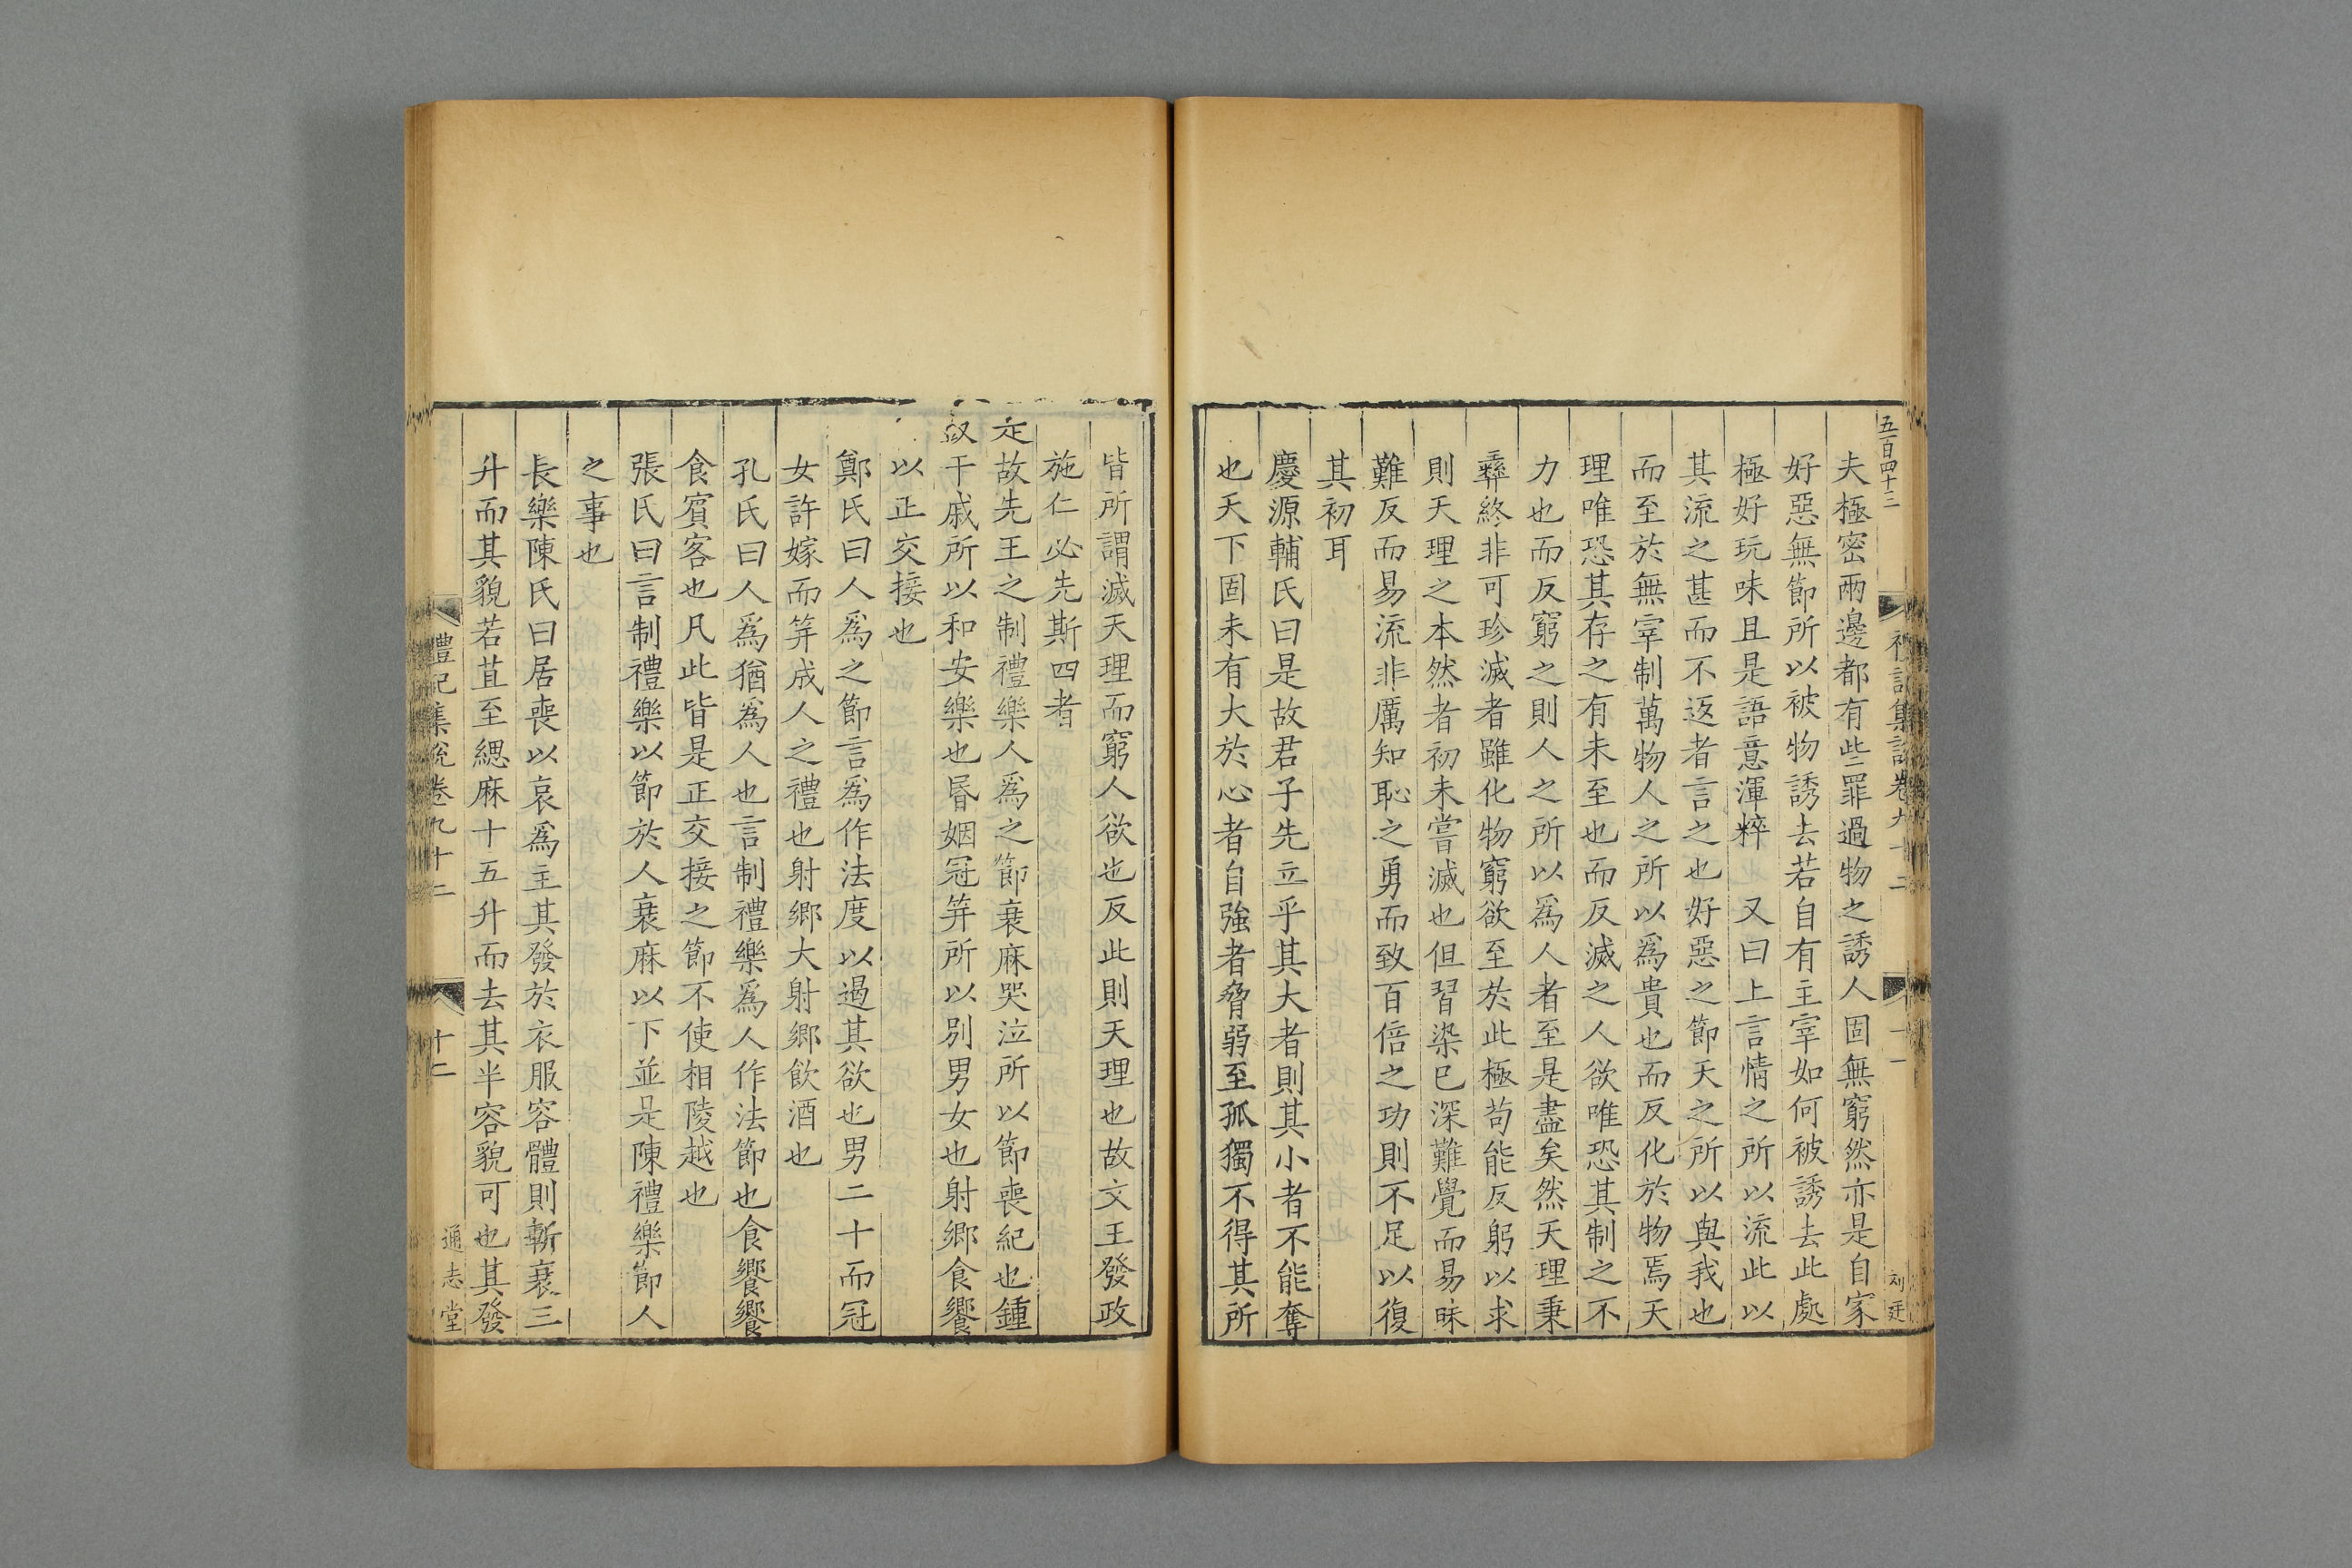 五百四十三
夫極密兩邊都有些罪過物之誘人固無窮然亦是自家
好惡無節所以被物誘去若自有主宰如何被誘去此處
極好玩味且是語意渾粹 又曰上言情之所以流此以
其流之甚而不返者言之也好惡之節天之所以與我也
而至於無宰制萬物人之所以爲貴也而反化於物焉天
理唯恐其存之有未至也而反滅之人欲唯恐其制之不
力也而反窮之則人之所以爲人者至是盡矣然天理秉
彝終非可珍滅者雖化物窮欲至於此極苟能反躬以求
則天理之本然者初未嘗滅也但習染已深難覺而易昧
難反而易流非厲知恥之勇而致百倍之功則不足以復
其初耳
慶源輔氏曰是故君子先立乎其大者則其小者不能奪
也天下固未有大於心者自強者脅弱至孤獨不得其所
皆所謂滅天理而窮人欲也反此則天理也故文王發政
施仁必先斯四者
故先王之制禮樂人爲之節衰麻哭泣所以節喪紀也鍾
干戚所以和安樂也昏姻冠笄所以別男女也射鄉食饗
以正交接也
鄭氏曰人爲之節言爲作法度以遏其欲也男二十而冠
女許嫁而笄成人之禮也射鄉大射鄉飲酒也
孔氏曰人爲猶爲人也言制禮樂爲人作法節也食饗饗
食賓客也凡此皆是正交接之節不使相陵越也
張氏曰言制禮樂以節於人衰麻以下並是陳禮樂節人
之事也
長樂陳氏曰居喪以哀爲主其發於衣服容體則斬衰三
升而其貌若苴至緦麻十五升而去其半容貌可也其發
禮記集說卷九十二
十二
通志堂